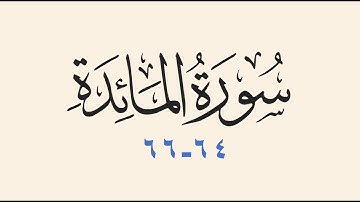 سُورَةُ المَائِدَةِ
٦٤-٦٦